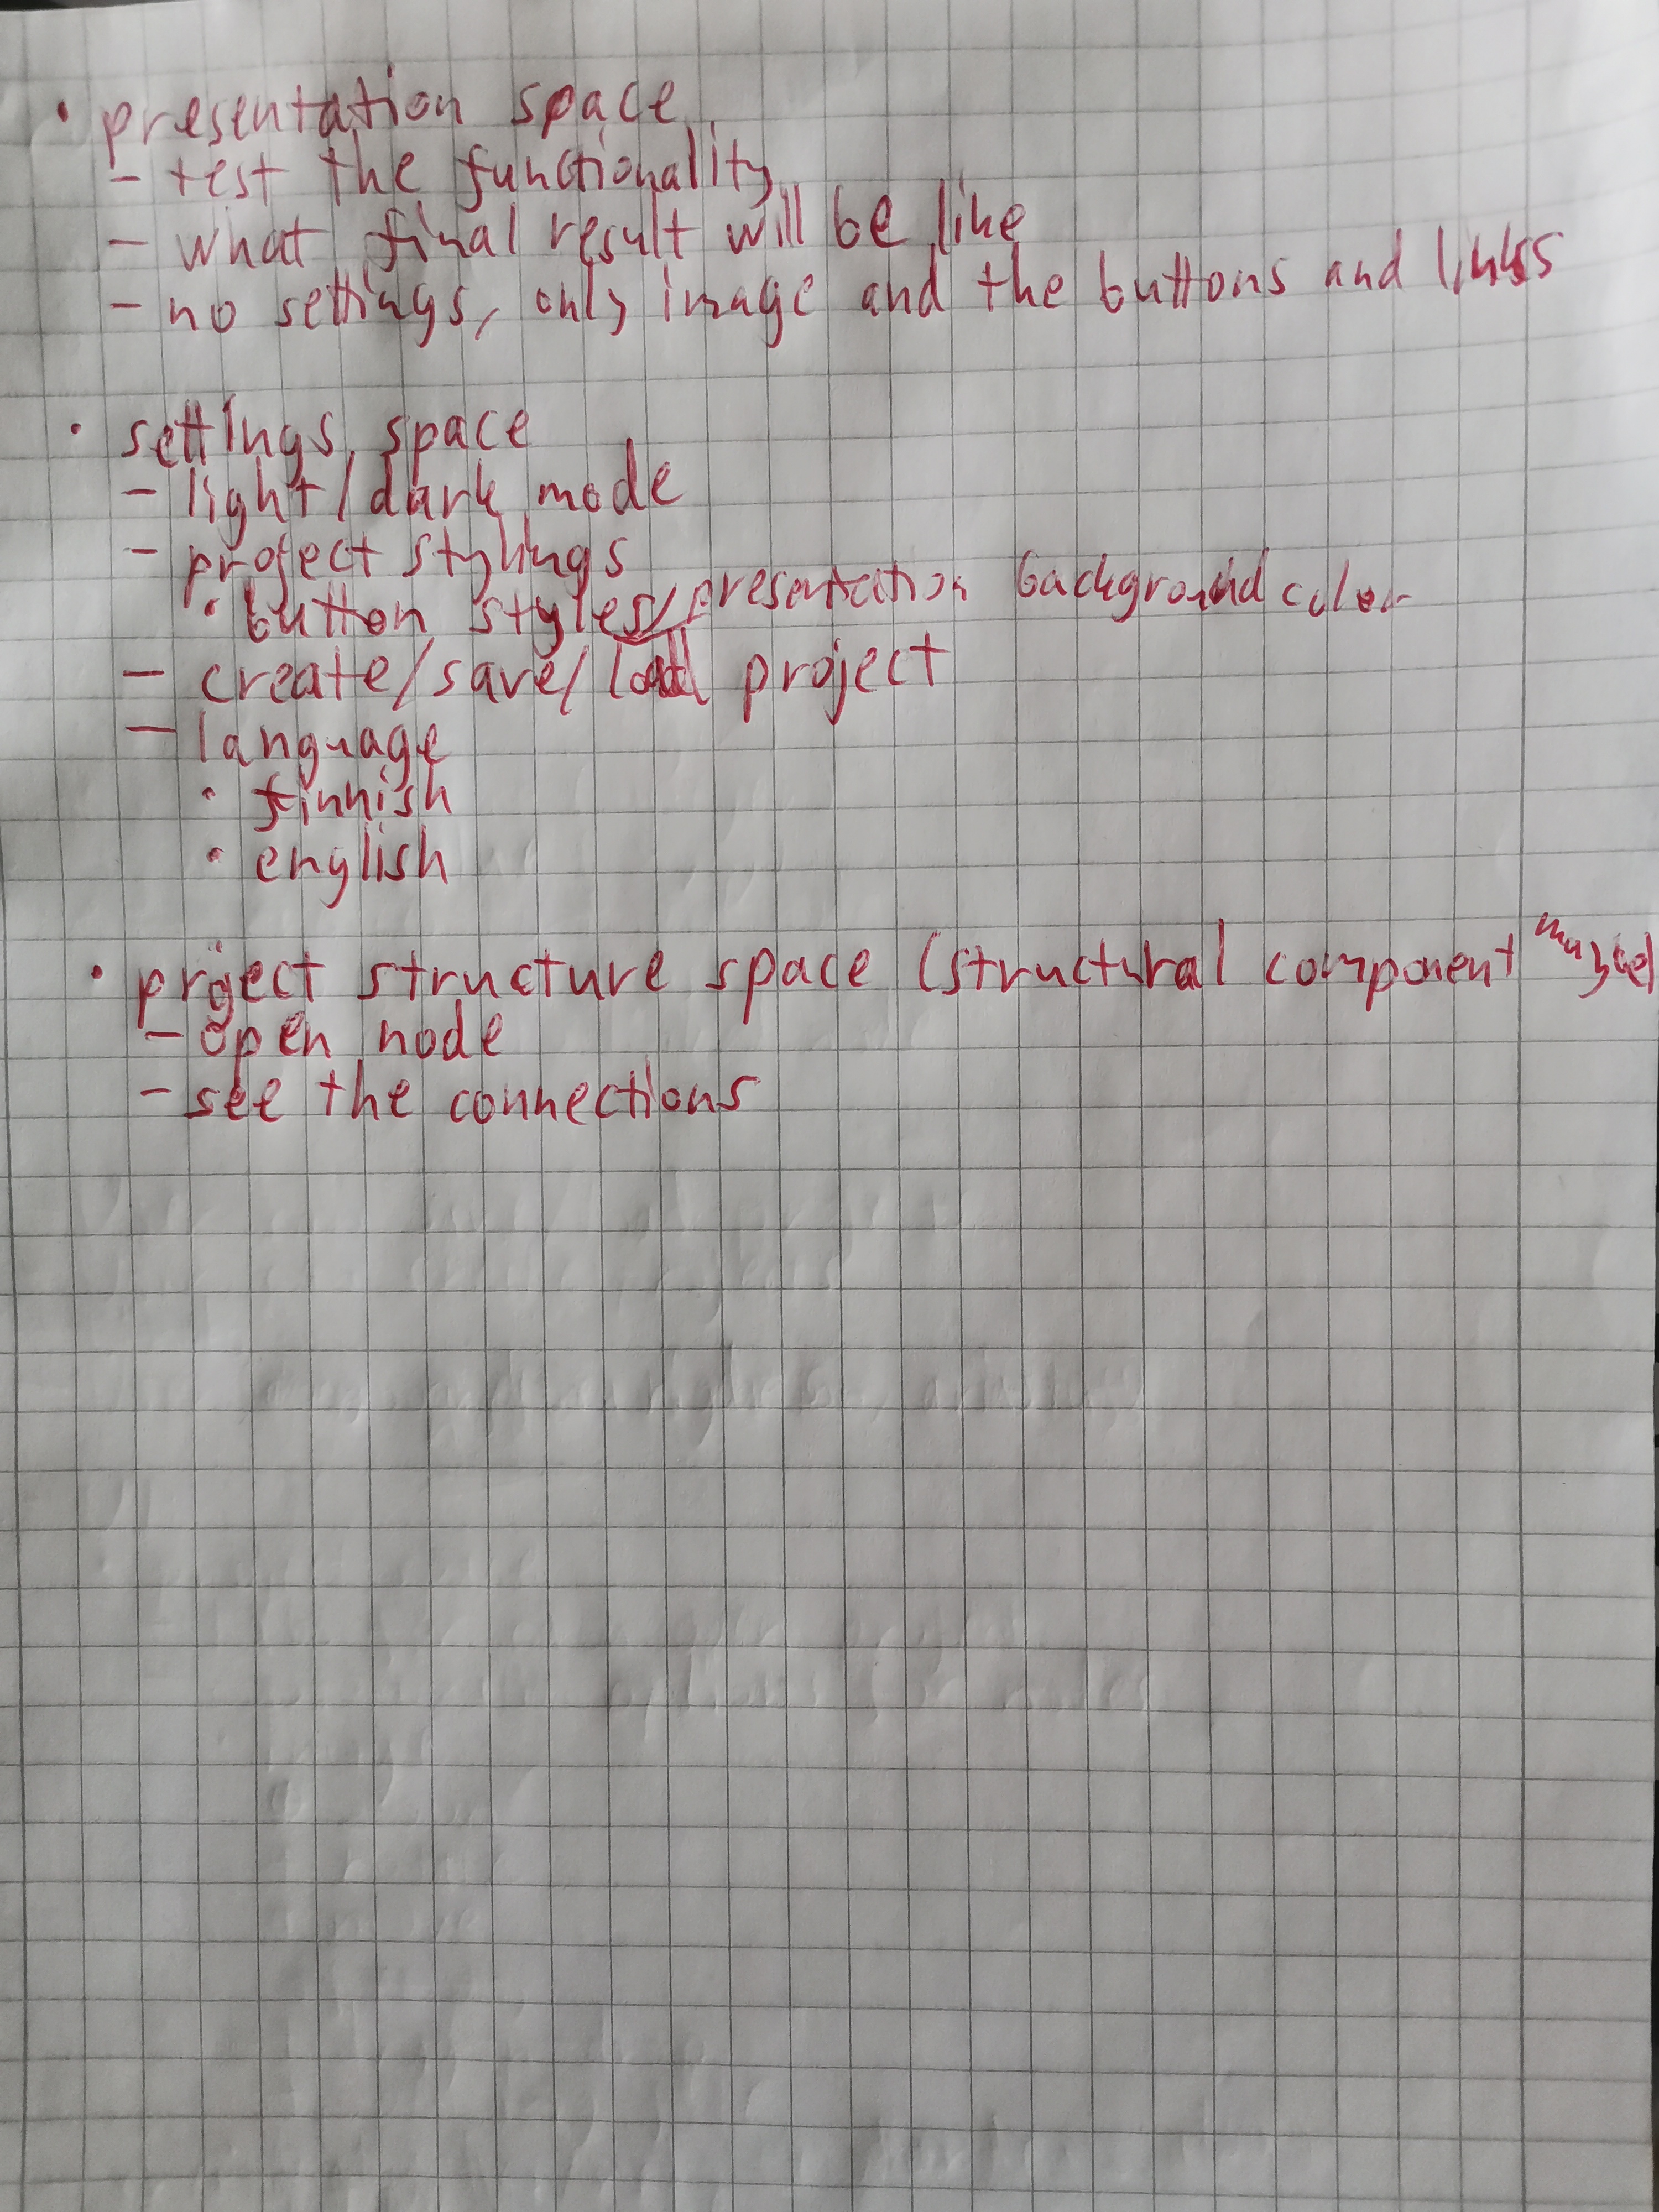 • presentation space
- test the functionality
- what final result will be like
- no settings, only image and the buttons and links
• settings space
- light/dark mode
- project stylings
• button styles/presentation background color
- create/save/load project
- language
• finnish
• english
• project structure space (structural component
- open node
- see the connections